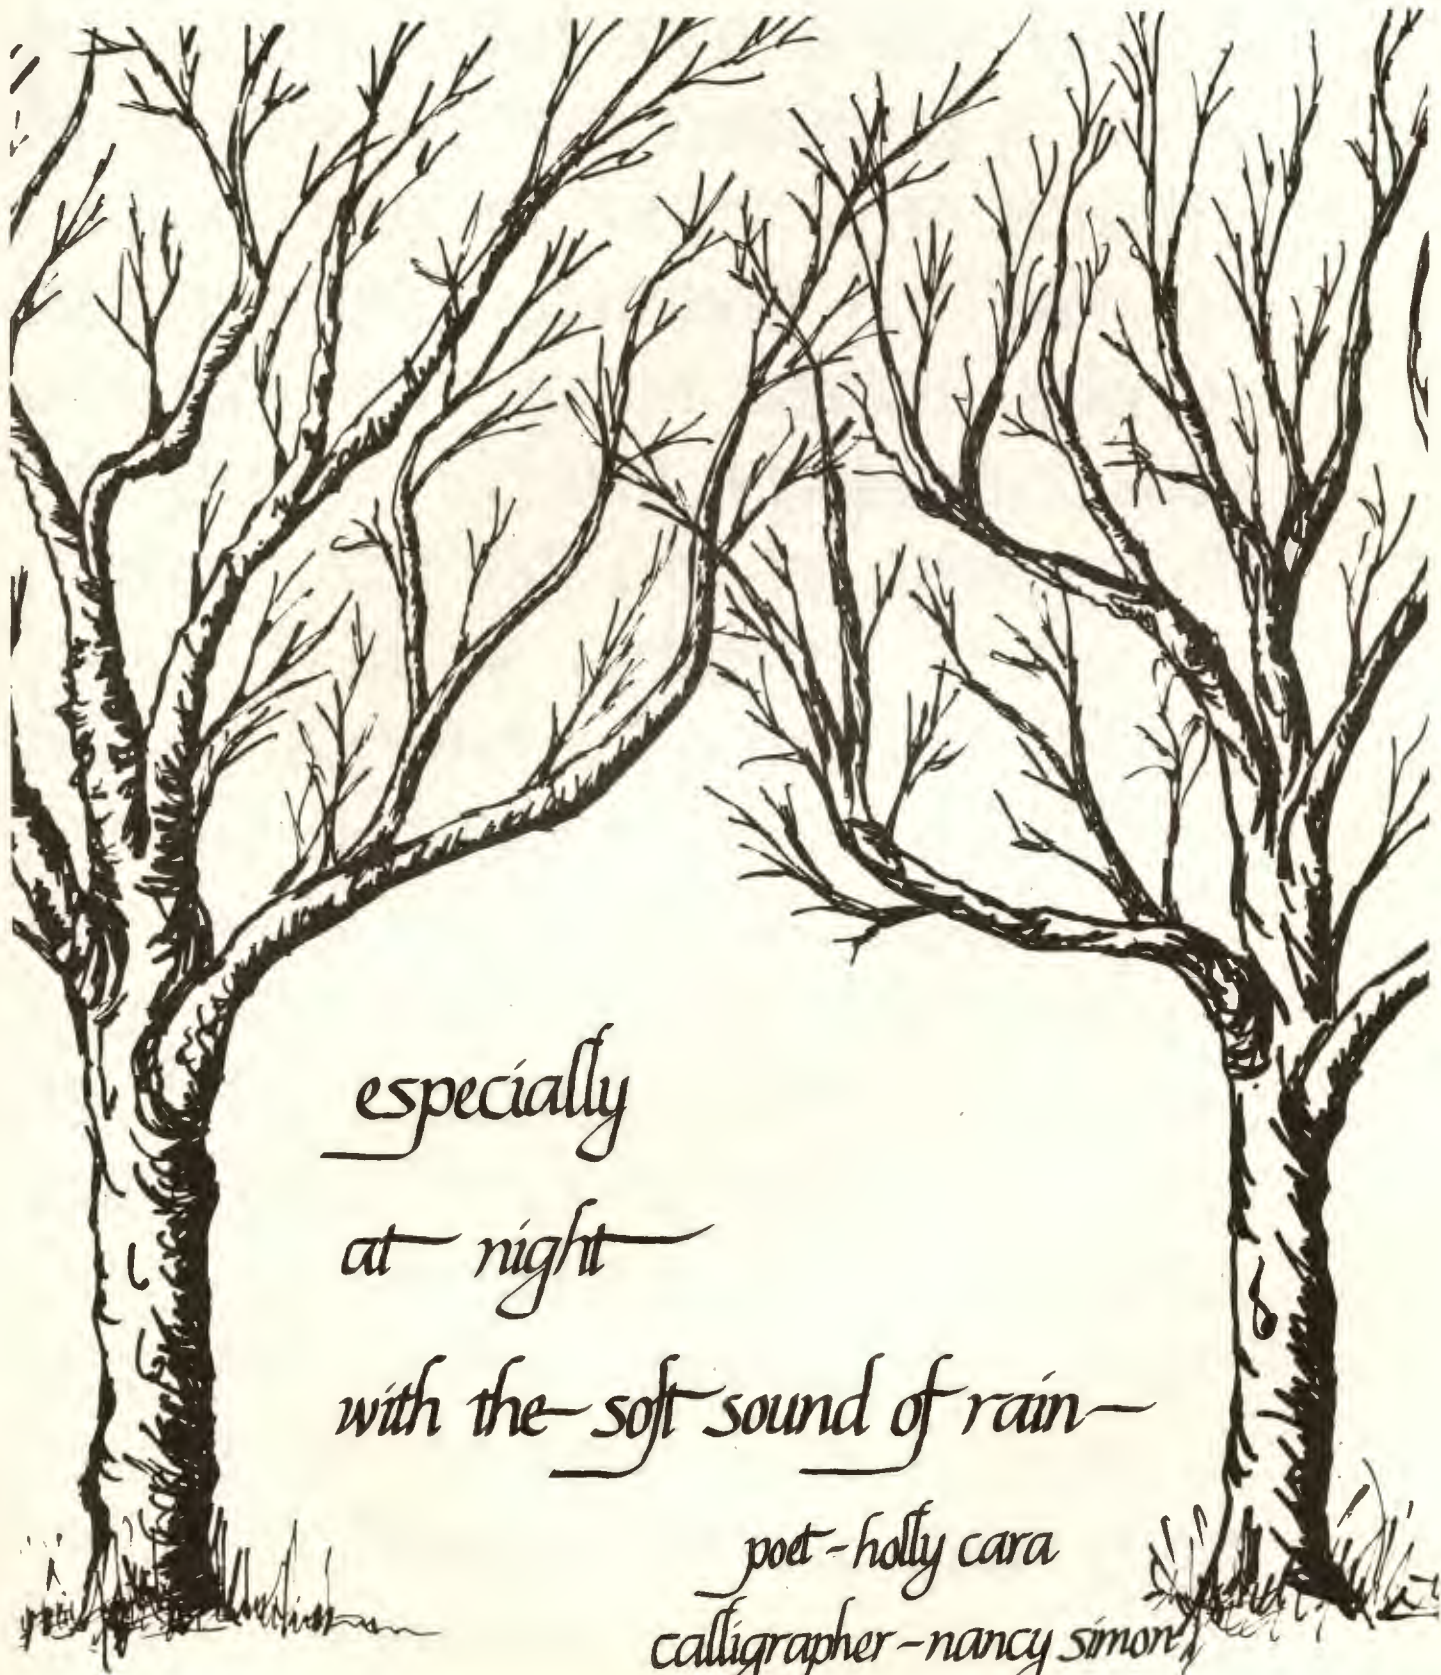 especially
at night
with the soft sound of rain
poet - holly cara
calligrapher - nancy simon